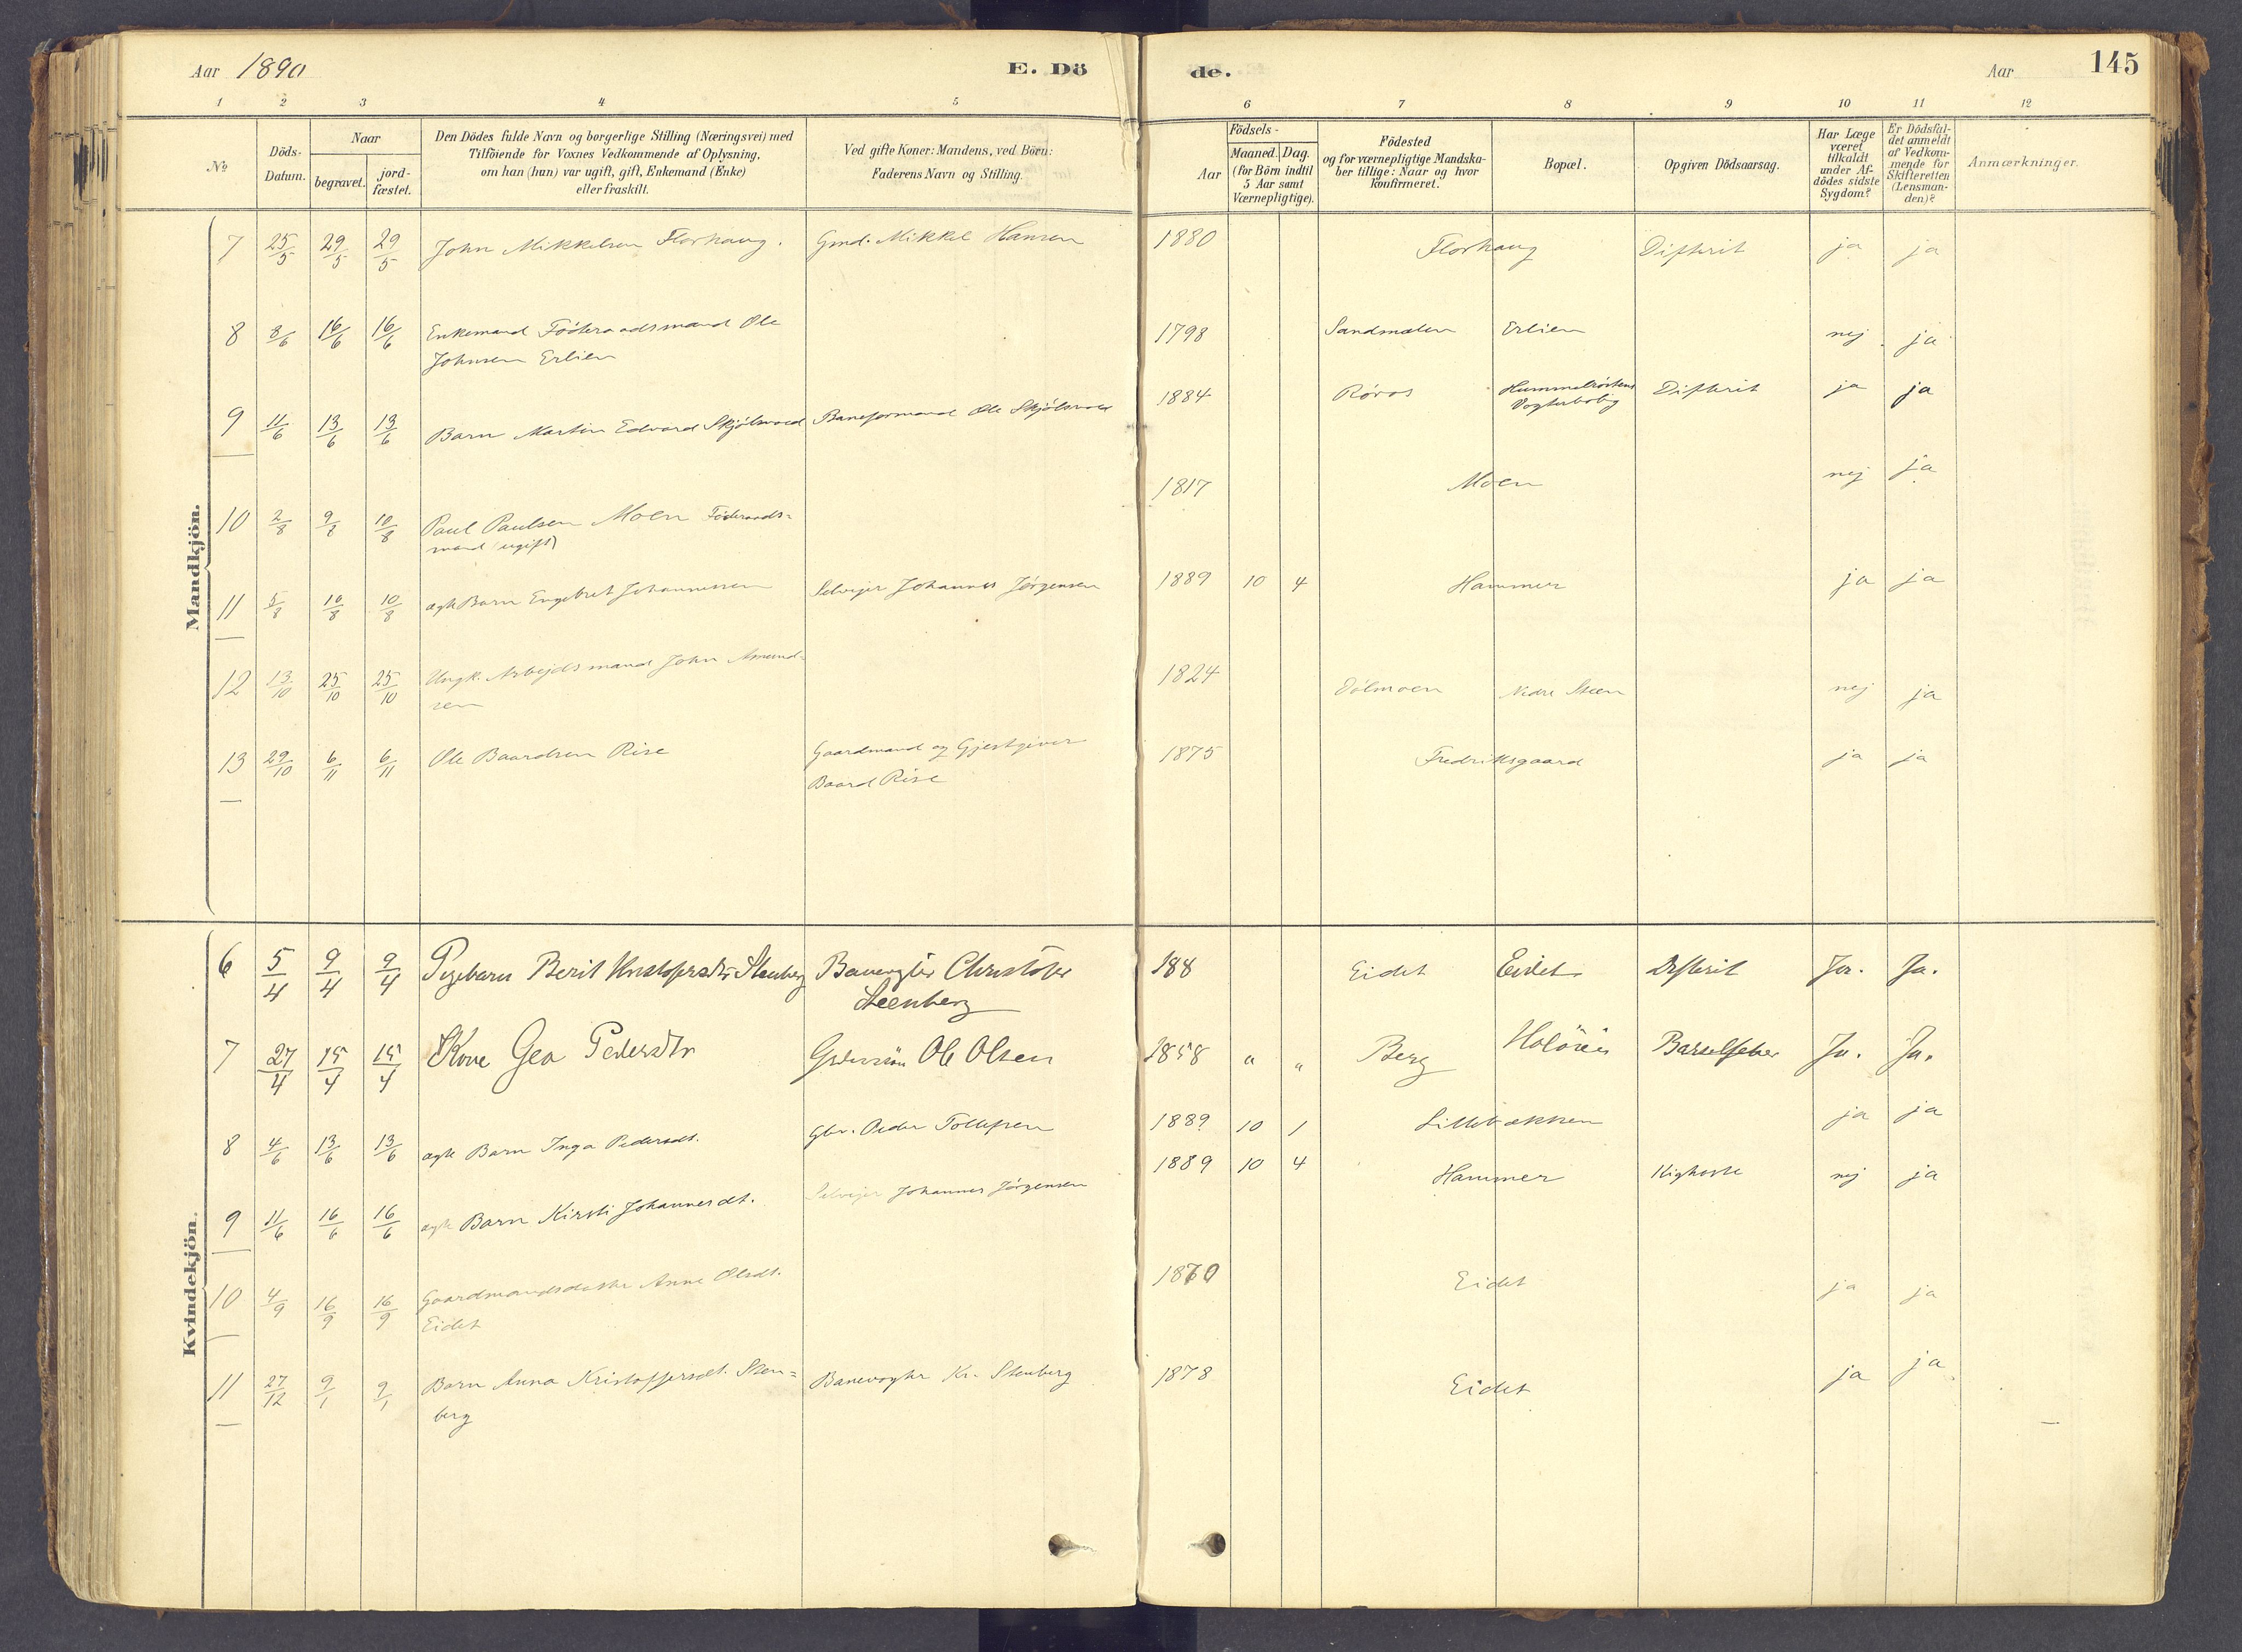 Aar 1890
E. Dö
de.
Aar
145
1 2 3 4 5 6 7 8 9 10 11 12
No
Döds-
Datum.
Naar
begravet.
jord-
fæstet.
Den Dödes fulde Navn og borgerlige Stilling (Næringsvei) med
Tilföiende for Voxnes Vedkommende af Oplysning,
om han (hun) var ugift, gift, Enkemand (Enke)
eller fraskilt.
Ved gifte Koner: Mandens, ved Börn:
Faderens Navn og Stilling.
Aar
Födsels-
Maaned. Dag.
(for Börn indtil
5 Aar samt
Værnepligtige).
Födested
og for værnepligtige Mandska-
ber tillige: Naar og hvor
konfirmeret.
Bopæl.
Opgiven Dödsaarsag.
Har Læge
været
tilkaldt
under Af-
dödes sidste
Sygdom?
Er Dödsfal-
det anmeldt
af Vedkom-
mende for
Skifteretten
(Lensman-
den)?
Anmærkninger.
Mandkjön.
7 25/5 29/5 29/5 John Mikkelsen Florhaug. Gmd. Mikkel Hansen 1880 Florhaug Difterit ja ja
8 8/6 16/6 16/6 Enkemand Föderaadsmand Ole 1798 Sandmælen Erlien nej ja
Johnsen Erlien
9 11/6 13/6 13/6 Barn Martin Edvard Skjölsvold Baneformand Ole Skjölsvold 1884 Röros Hummelvoldens Difterit ja ja
Vogterbolig
10 2/8 9/8 10/8 Paul Paulsen Moen Föderaads= 1817 Moen nej ja
mand (ugift)
11 5/8 10/8 10/8 ægte Barn Engebret Johannessen Selveier Johannes Jörgensen 1889 10 4 Hammer ja ja
12 13/10 25/10 25/10 Ungk. Arbejdsmand John Amund= 1824 Dölmoen Nedre Steen nej ja
sen
13 29/10 6/11 6/11 Ole Baardsen Rise Gaardmand og Gjestgiver 1875 Fredriksgaard ja ja
Baard Rise
Kvindekjön.
6 5/4 9/4 9/4 Pigebarn Berit Kristofersdtr Stenberg Banevogter Christofer 188 Eidet Eidet Difterit Ja. Ja.
Steenberg
7 27/4 15/4 15/4 Kone Gea Pedersdtr Ole Olsen 1858 " " Berg Barselfeber Ja. Ja.
8 4/6 13/6 13/6 ægte Barn Inga Pedersdt. Gbr. Peder Tollefsen 1889 10 1 Lillebakken ja ja
9 11/6 16/6 16/6 ægte Barn Kirsti Johannesdt. Selveier Johannes Jörgensen 1889 10 4 Hammer Kighoste nej ja
10 4/9 16/9 16/9 Gaardmandsdatter Anne Olsdt. 1870 Eidet ja ja
Eidet
11 27/12 9/1 9/1 Barn Anna Kristoffersdt. Sten= Banevogter Kr. Stenberg 1878 Eidet ja ja
berg